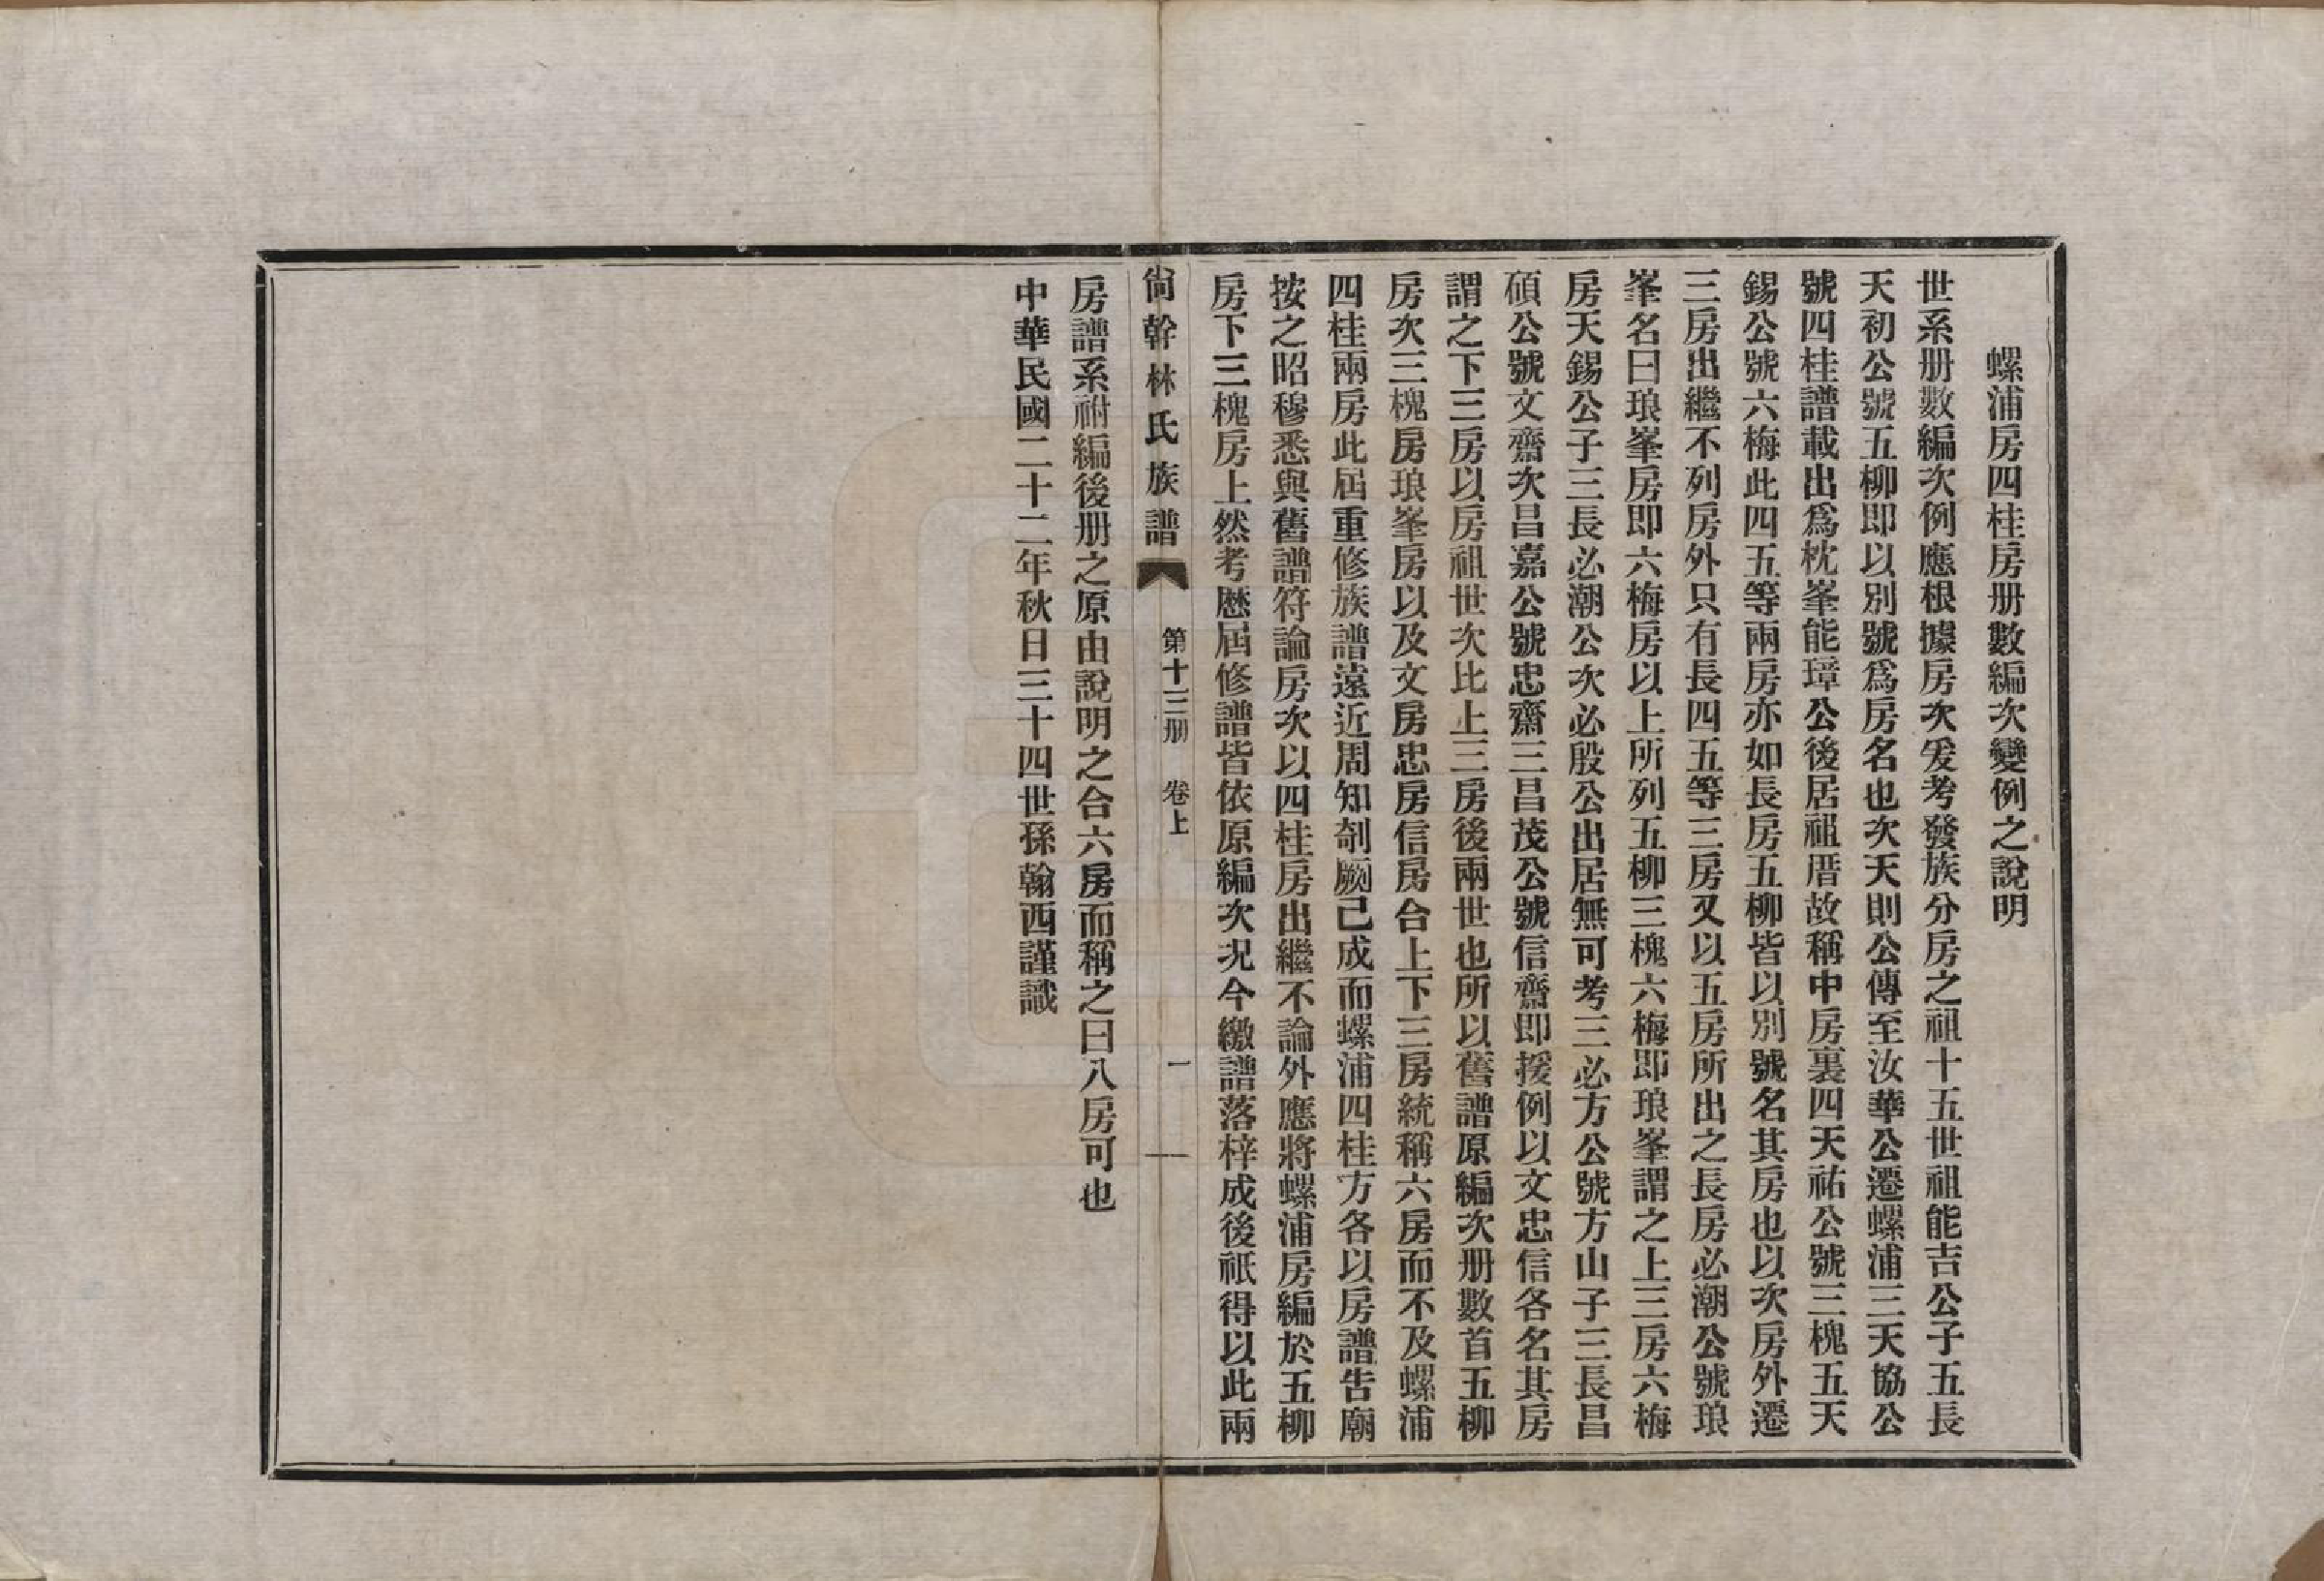 螺浦房四桂房册數編次變例之說明
世系册數編次例應根據房次爰考發族分房之祖十五世祖能吉公子五長
天初公號五柳即以別號爲房名也次天則公傳至汝華公遷螺浦三天協公
號四桂譜載出爲枕峯能璋公後居祖厝故稱中房裏四天祐公號三槐五天
錫公號六梅此四五等兩房亦如長房五柳皆以別號名其房也以次房外遷
三房出繼不列房外只有長四五等三房又以五房所出之長房必潮公號琅
峯名曰琅峯房即六梅房以上所列五柳三槐六梅即琅峯謂之上三房六梅
房天錫公子三長必潮公次必殷公出居無可考三必方公號方山子三長昌
碩公號文齋次昌嘉公號忠齋三昌茂公號信齋即援例以文忠信各名其房
謂之下三房以房祖世次比上三房後兩世也所以舊譜原編次册數首五柳
房次三槐房琅峯房以及文房忠房信房合上下三房統稱六房而不及螺浦
四桂兩房此屆重修族譜遠近周知剞劂己成而螺浦四桂方各以房譜告廟
按之昭穆悉與舊譜符論房次以四桂房出繼不論外應將螺浦房編於五柳
房下三槐房上然考歷屆修譜皆依原編次况今繳譜落梓成後祇得以此兩
尙幹林氏族譜 第十三册 卷上 一
房譜系祔編後册之原由說明之合六房而稱之曰八房可也
中華民國二十二年秋日三十四世孫翰西謹識